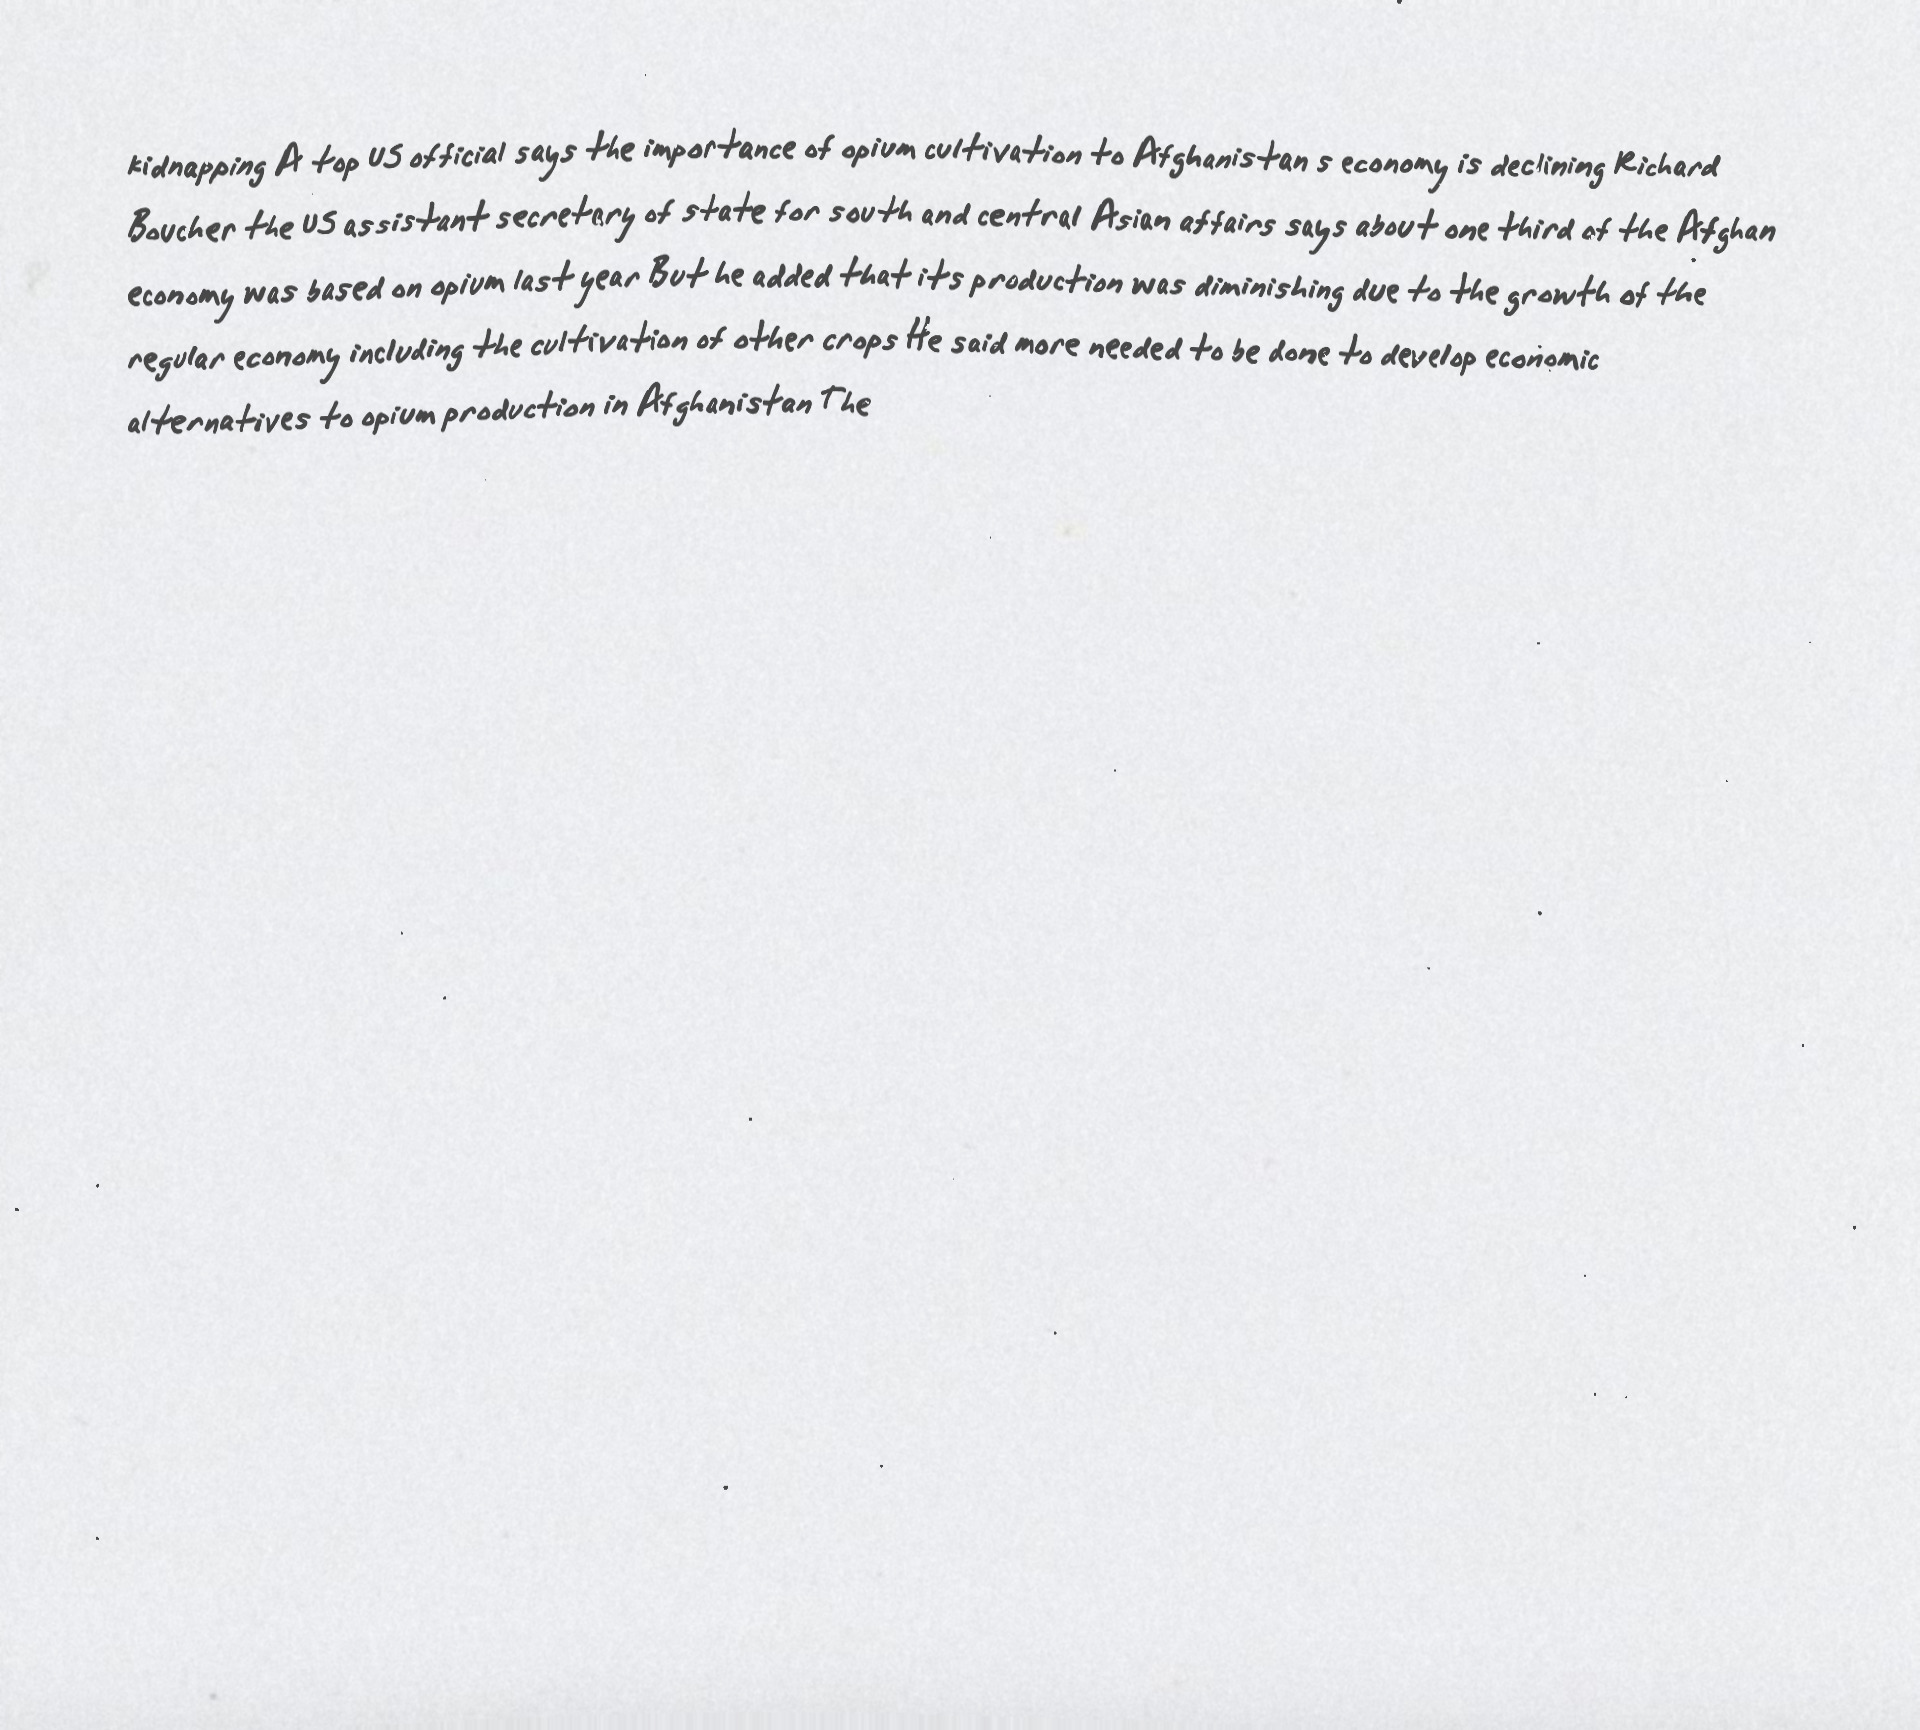 kidnapping A top US official says the importance of opium cultivation to Afghanistan s economy is declining Richard
Boucher the US assistant secretary of state for south and central Asian affairs says about one third of the Afghan
economy was based on opium last year But he added that its production was diminishing due to the growth of the
regular economy including the cultivation of other crops He said more needed to be done to develop economic
alternatives to opium production in Afghanistan The